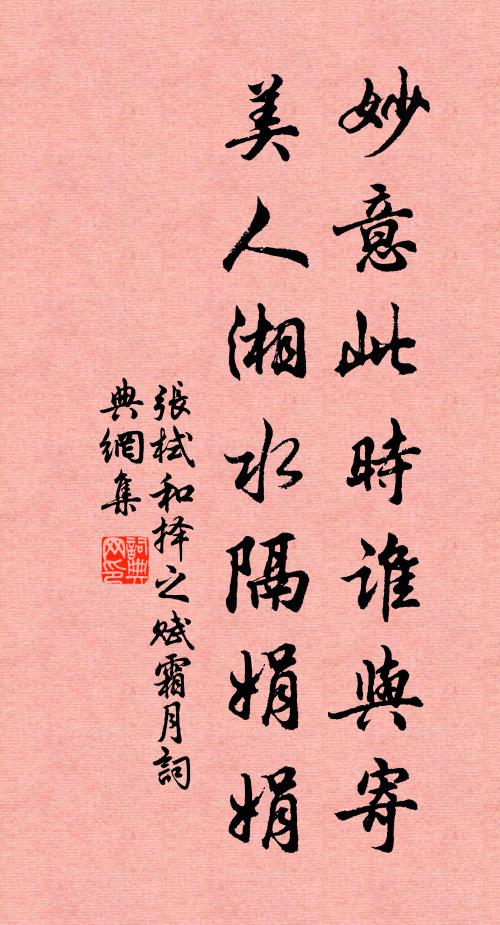 妙意此時谁與寄
美人湘水隔娟娟
張栻和择之赋霜月詞
典網集
詞典
网印